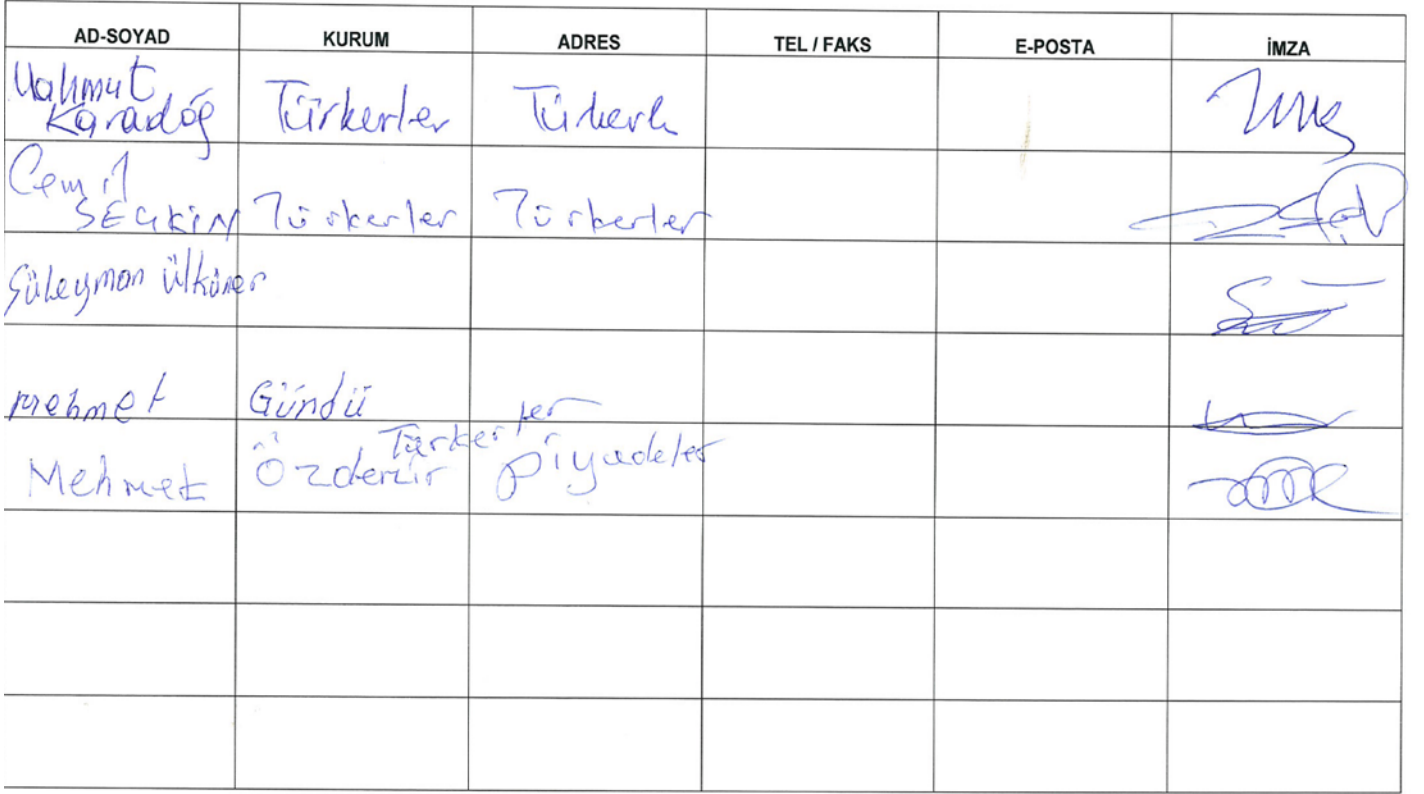 AD-SOYAD KURUM ADRES TEL / FAKS E-POSTA İMZA
Mahmut
Karadóğ Türkerler Türkerle
Cemil
SEÇKİN Türkerler Türkerler
Süleyman ülküner
mehmet Gündü
Türkerler
Mehmet Özdemir Piyadeler